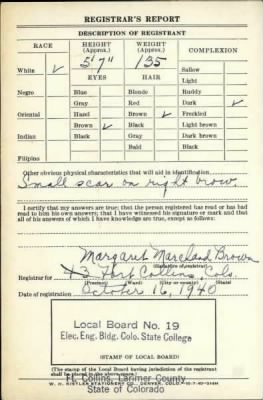 REGISTRAR'S REPORT
DESCRIPTION OF REGISTRANT
RACE HEIGHT (Approx.) WEIGHT (Approx.) COMPLEXION
5'7" 135
White ✓ Sallow
EYES HAIR Light
Negro Blue Blonde Ruddy
Gray Red Dark ✓
Oriental Hazel Brown ✓ Freckled
Brown ✓ Black Light brown
Indian Black Gray Dark brown
Bald Black
Filipino
Other obvious physical characteristics that will aid in identification
Small scar on right brow.
I certify that my answers are true; that the person registered has read or has had
read to him his own answers; that I have witnessed his signature or mark and that
all of his answers of which I have knowledge are true, except as follows:
Margaret Marchand Brown
(Signature of registrar)
Registrar for #3 Fort Collins, Colo.
(Precinct) (Ward) (City or county) (State)
Date of registration October 16, 1940
Local Board No. 19
Elec. Eng. Bldg. Colo. State College
(STAMP OF LOCAL BOARD)
(The stamp of the Local Board having jurisdiction of the registrant
shall be placed in the above space.)
Ft. Collins, Larimer County
State of Colorado